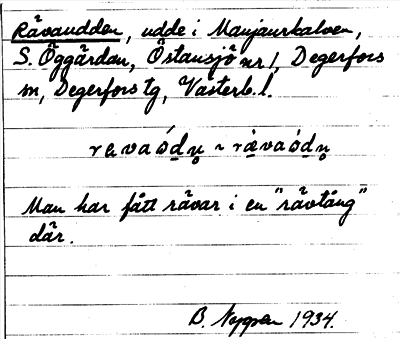 Rävaudden, udde i Manjaurkalven,
S. Öggårdan, Östansjö nr 1, Degerfors
sn, Degerfors tg, Västerb. l.
Man har fått rävar i en "rävtång"
där.
B. Nygren 1934.